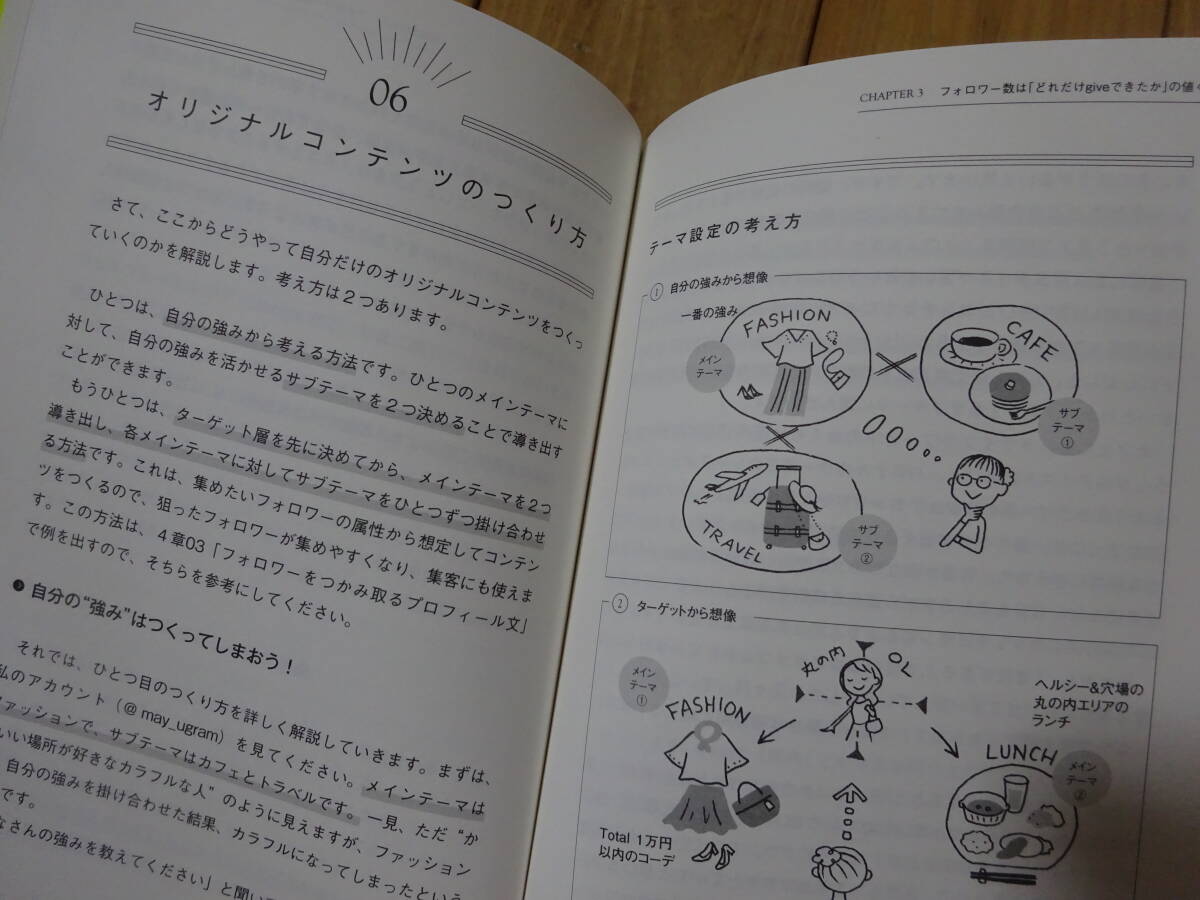 06
オリジナルコンテンツのつくり方
さて、ここからどうやって自分だけのオリジナルコンテンツをつくっ
ていくのかを解説します。考え方は2つあります。
ひとつは、自分の強みから考える方法です。ひとつのメインテーマに
対して、自分の強みを活かせるサブテーマを2つ決めることで導き出す
ことができます。
もうひとつは、ターゲット層を先に決めてから、メインテーマを2つ
導き出し、各メインテーマに対してサブテーマをひとつずつ掛け合わせ
る方法です。これは、集めたいフォロワーの属性から想定してコンテン
ツをつくるので、狙ったフォロワーが集めやすくなり、集客にも使えま
す。この方法は、4章03「フォロワーをつかみ取るプロフィール文」
で例を出すので、そちらを参考にしてください。
自分の“強み”はつくってしまおう！
それでは、ひとつ目のつくり方を詳しく解説していきます。まずは、
私のアカウント（@may_ugram）を見てください。メインテーマは
ファッションで、サブテーマはカフェとトラベルです。一見、ただ“か
いい場所が好きなカラフルな人”のように見えますが、ファッション
自分の強みを掛け合わせた結果、カラフルになってしまったという
です。
なさんの強みを教えてください」と聞い
CHAPTER 3 フォロワー数は「どれだけgiveできたか」の値
テーマ設定の考え方
① 自分の強みから想像
一番の強み
メイン
テーマ
FASHION
CAFE
サブ
テーマ
①
TRAVEL
サブ
テーマ
②
② ターゲットから想像
丸の内
OL
メイン
テーマ
①
FASHION
Total 1万円
以内のコーデ
ヘルシー&穴場の
丸の内エリアの
ランチ
LUNCH
メイン
テーマ
②